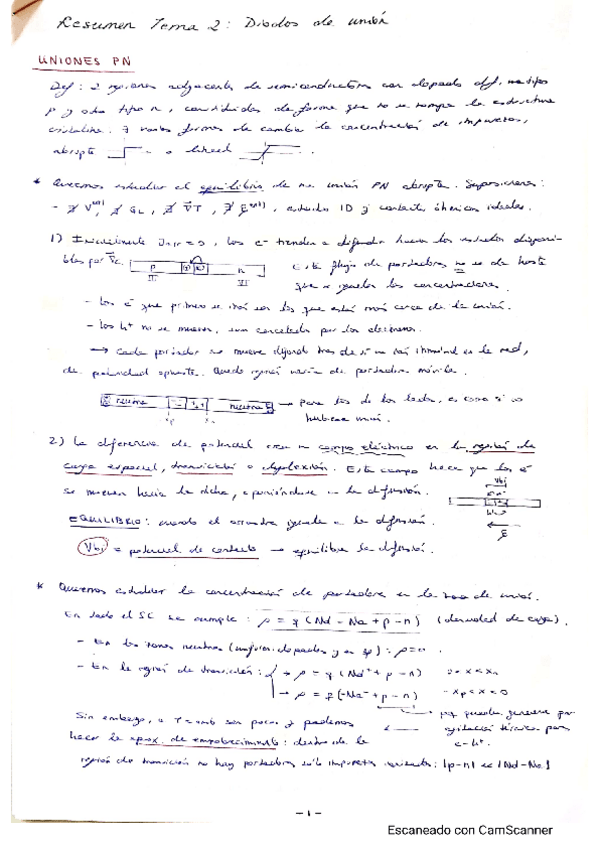 Resumen Tema 2: Diodos de unión
UNIONES PN
Def: 2 regiones adyacentes de semiconductores con dopado dif, una tipo
p y otra tipo n, constituidas de forma que no se rompe la estructura
cristalina. ∃ varias formas de cambiar la concentración de impurezas,
abrupta o lineal .
* Queremos estudiar el equilibrio de una unión PN abrupta. Suposiciones:
- ∄ V, ∄ GL, ∄ ∇T, ∄ E, ID y contactos óhmicos ideales.
1) Inicialmente los e- tienden a difundir hacia los estados disponi-
bles por
p n
III VI
Este flujo de portadores no se da hasta
que se igualen las concentraciones.
- Los e- que primero se irán son los que están más cerca de la unión.
- Los h+ no se mueven, son cancelados por los electrones.
→ Cada portador se mueve dejando tras de sí un ión inmóvil en la red,
de polaridad opuesta. Queda región vacía de portadores móviles.
neutra - + neutra → Para los de los lados, es como si no
xp xn hubiese unión.
2) La diferencia de potencial crea un campo eléctrico en la región de
carga espacial, transición o deplexión. Este campo hace que los e-
se muevan hacia la dcha, oponiéndose a la difusión.
Vbi
EQUILIBRIO: cuando el arrastre iguala a la difusión.
E
Vbi = potencial de contacto → equilibra la difusión.
* Queremos estudiar la concentración de portadores en la zona de unión.
En todo el SC se cumple: ρ = q (Nd - Na + p - n) (densidad de carga).
- En las zonas neutras : ρ=0
- En la región de transición: → ρ = q (Nd+ + p - n) 0 < x < xn
→ ρ = q (-Na- + p - n) -xp < x < 0
pq pueden generarse por
agitación térmica pares
e- h+.
Sin embargo, a T=amb son pocos y podemos
hacer la aprox. de empobrecimiento: dentro de la
región de transición no hay portadores sólo impurezas ionizadas: |p-n| << |Nd-Na|
- 1 -
Escaneado con CamScanner